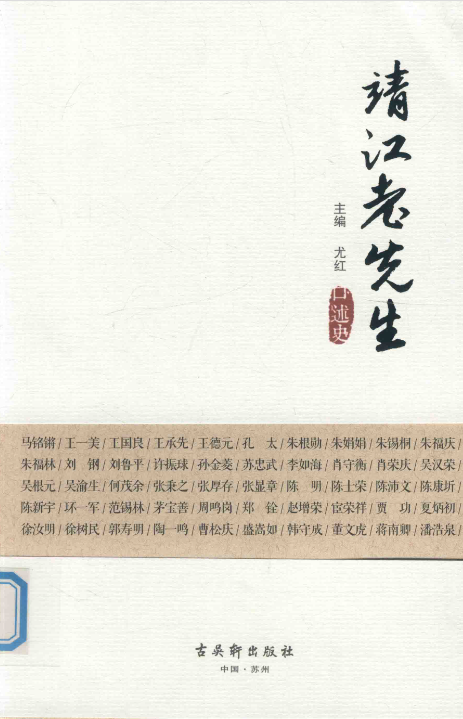 靖江老先生
主编 尤红
口述史
马铭锵/王一美/王国良/王承先/王德元/孔 太/朱根勋/朱娟娟/朱锡桐/朱福庆/
朱福林/刘 钢/刘鲁平/许振球/孙金菱/苏忠武/李如海/肖守衡/肖荣庆/吴汉荣/
吴根元/吴渝生/何茂余/张秉之/张厚存/张显章/陈 明/陈士荣/陈沛文/陈康圻/
陈新宇/环一军/范锡林/茅宝善/周鸣岗/郑 铨/赵增荣/宦荣祥/贾 功/夏炳初/
徐汝明/徐树民/郭寿明/陶一鸣/曹松庆/盛嵩如/韩守成/董文虎/蒋南卿/潘浩泉/
古吴轩出版社
中国·苏州